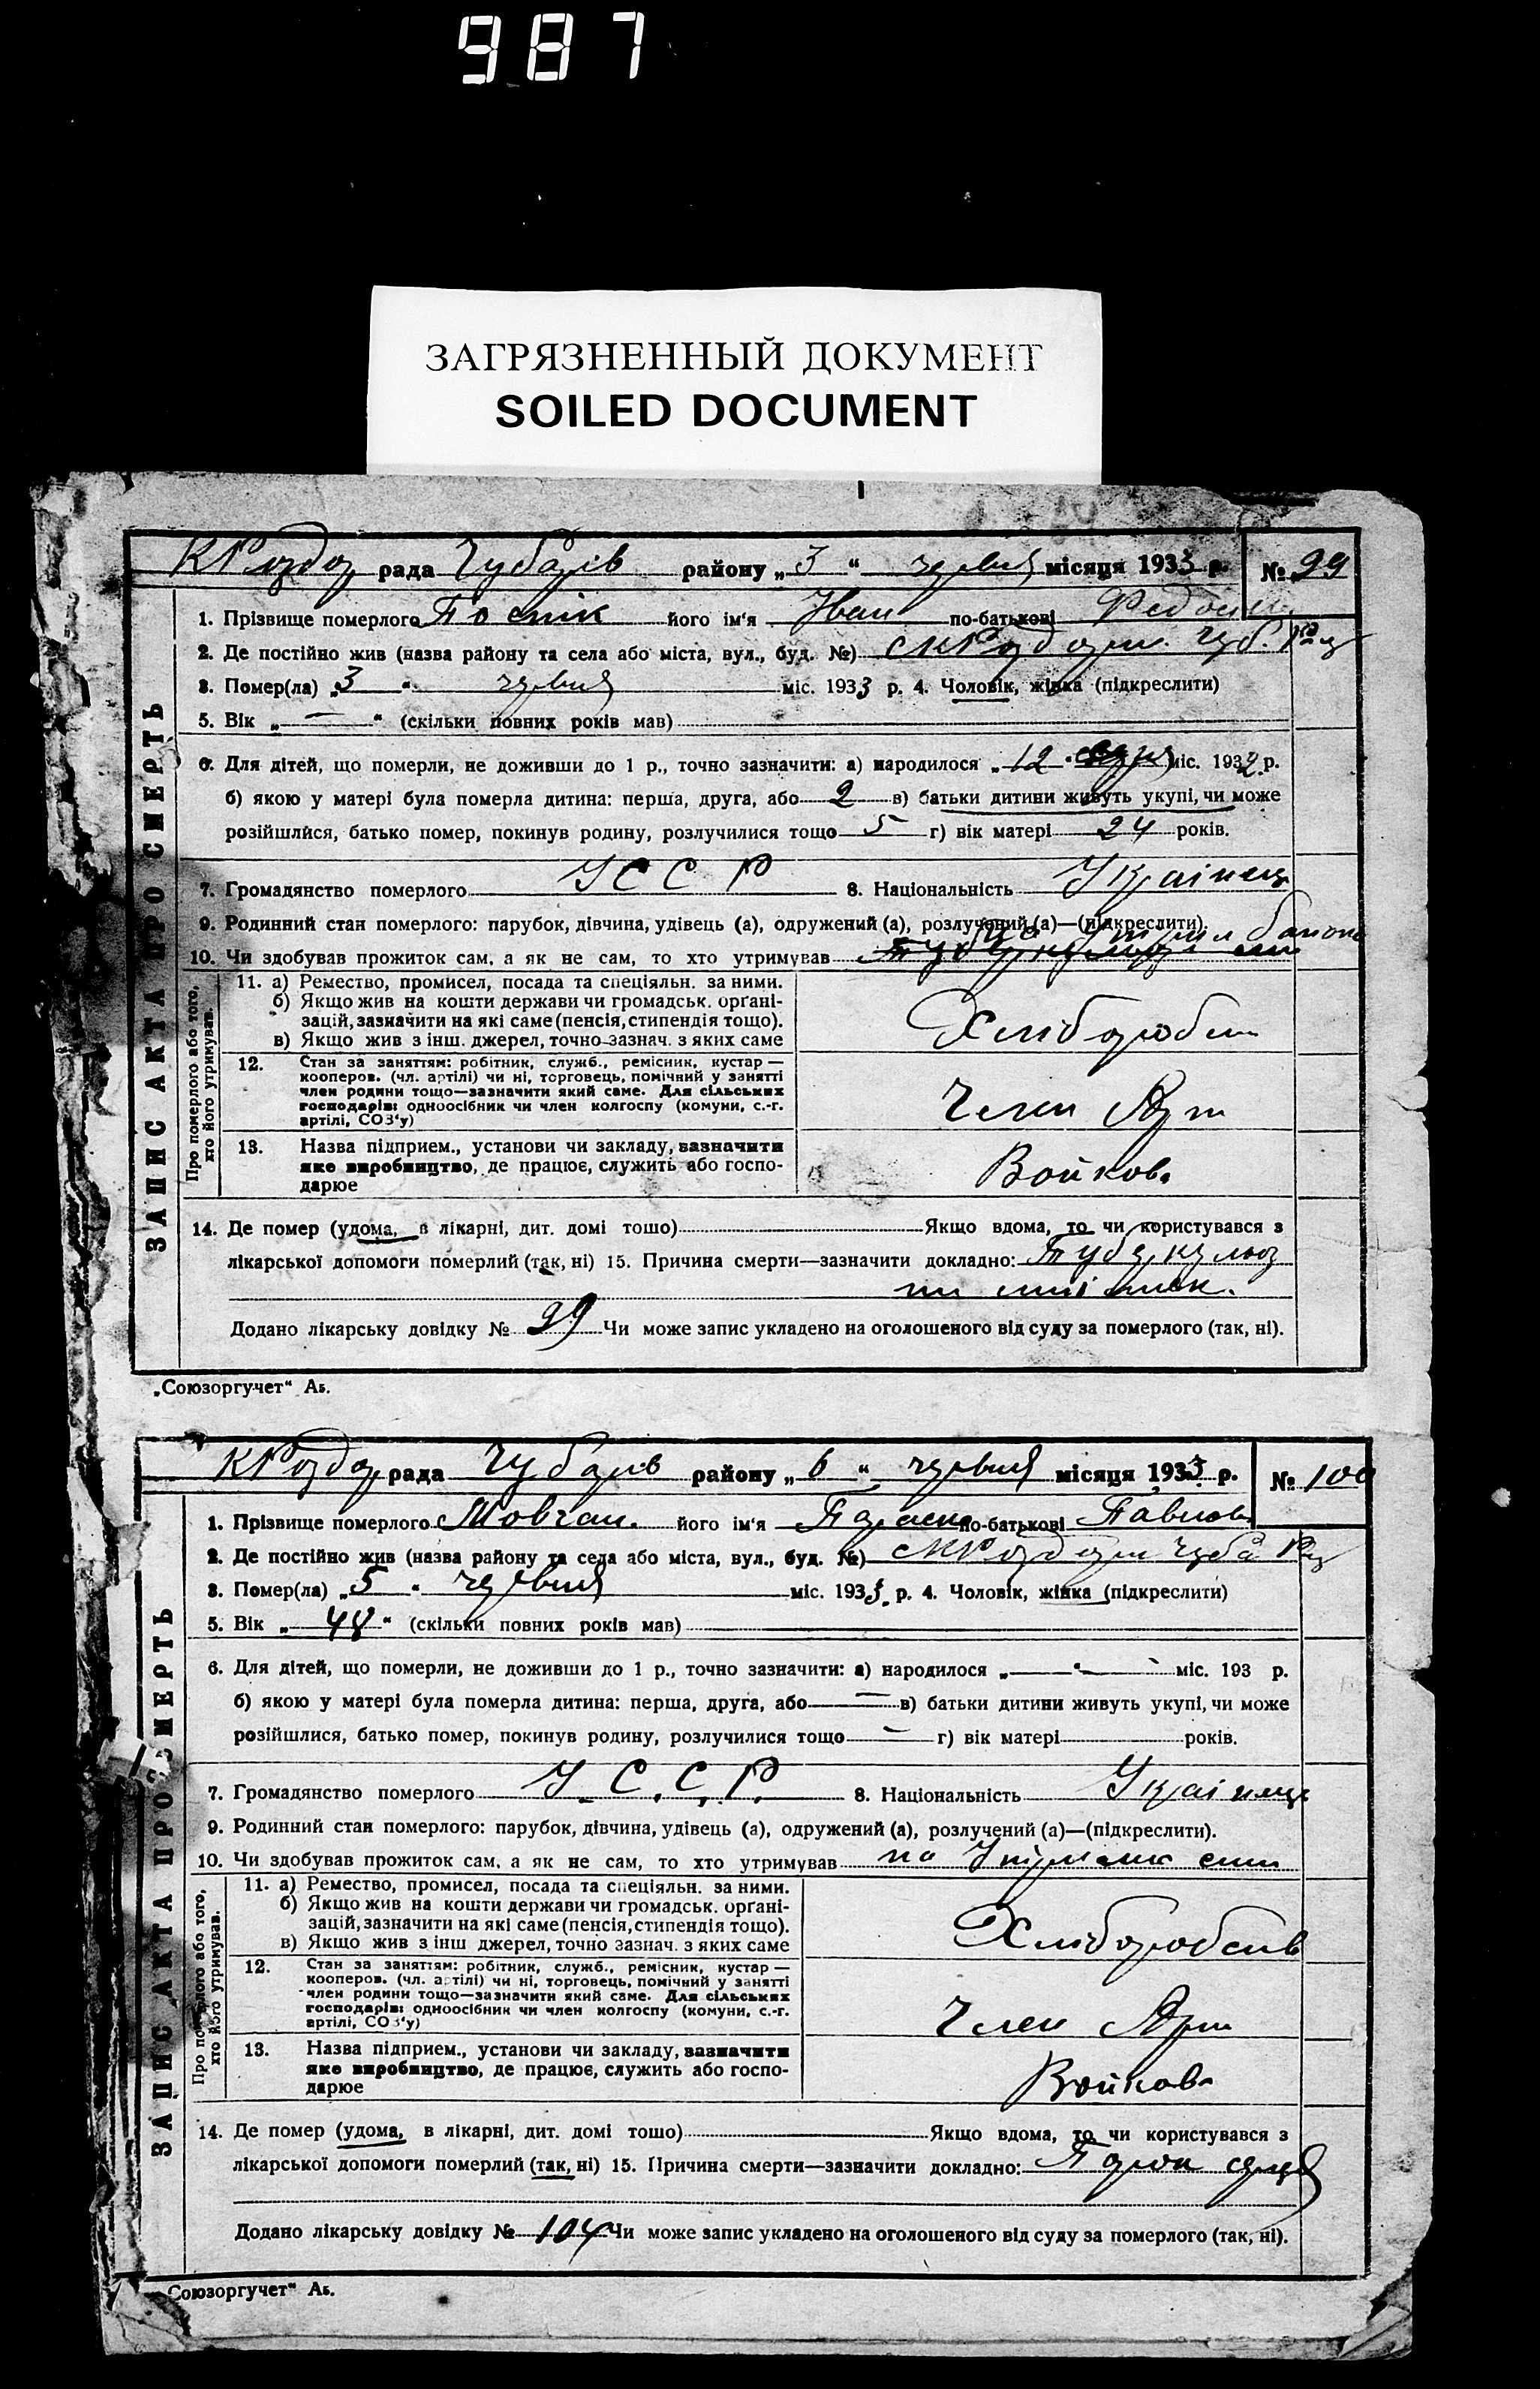 987
ЗАГРЯЗНЕННЫЙ ДОКУМЕНТ
SOILED DOCUMENT
ЗАПИС АКТА ПРО СМЕРТЬ
рада Чубарів району „3“ червня місяця 1933 р. № 99
1. Прізвище померлого його ім'я Іван по-батькові
2. Де постійно жив (назва району та села або міста, вул., буд. №)
3. Помер(ла) „3“ червня міс. 1933 р. 4. Чоловік, жінка (підкреслити)
5. Вік „—“ (скільки повних років мав)
6. Для дітей, що померли, не доживши до 1 р., точно зазначити: а) народилося „12“ міс. 1932 р.
б) якою у матері була померла дитина: перша, друга, або 2 в) батьки дитини живуть укупі, чи може
розійшлися, батько помер, покинув родину, розлучилися тощо 5 г) вік матері 24 років.
7. Громадянство померлого УССР 8. Національність Українець
9. Родинний стан померлого: парубок, дівчина, удівець (а), одружений (а), розлучений (а)—(підкреслити).
10. Чи здобував прожиток сам, а як не сам, то хто утримував
Про померлого або того, хто його утримував.
11. а) Ремество, промисел, посада та спеціяльн. за ними.
б) Якщо жив на кошти держави чи громадськ. орґані-
зацій, зазначити на які саме (пенсія, стипендія тощо).
в) Якщо жив з інш. джерел, точно зазнач. з яких саме
12. Стан за заняттям: робітник, служб., ремісник, кустар —
кооперов. (чл. артілі) чи ні, торговець, помічний у занятті
член родини тощо—зазначити який саме. Для сільських
господарів: одноосібник чи член колгоспу (комуни, с.-г.
артілі, СОЗ'у)
Член Арт
13. Назва підприєм., установи чи закладу, зазначити
яке виробництво, де працює, служить або госпо-
дарює
Войкова
14. Де помер (удома, в лікарні, дит. домі тощо) Якщо вдома, то чи користувався з
лікарської допомоги померлий (так, ні) 15. Причина смерти—зазначити докладно: Туберкульоз
Додано лікарську довідку № 99 Чи може запис укладено на оголошеного від суду за померлого (так, ні).
„Союзоргучет“ Аб.
ЗАПИС АКТА ПРО СМЕРТЬ
рада Чубарів району „6“ червня місяця 1933 р. № 100
1. Прізвище померлого Мовчан його ім'я Параска по-батькові Павлов
2. Де постійно жив (назва району та села або міста, вул., буд. №)
3. Помер(ла) „5“ червня міс. 1933 р. 4. Чоловік, жінка (підкреслити)
5. Вік „48“ (скільки повних років мав)
6. Для дітей, що померли, не доживши до 1 р., точно зазначити: а) народилося „—“ міс. 193 р.
б) якою у матері була померла дитина: перша, друга, або — в) батьки дитини живуть укупі, чи може
розійшлися, батько помер, покинув родину, розлучилися тощо — г) вік матері років.
7. Громадянство померлого У.С.С.Р. 8. Національність Українець
9. Родинний стан померлого: парубок, дівчина, удівець (а), одружений (а), розлучений (а)—(підкреслити).
10. Чи здобував прожиток сам, а як не сам, то хто утримував на
Про померлого або того, хто його утримував.
11. а) Ремество, промисел, посада та спеціяльн. за ними.
б) Якщо жив на кошти держави чи громадськ. орґані-
зацій, зазначити на які саме (пенсія, стипендія тощо).
в) Якщо жив з інш джерел, точно зазнач. з яких саме
12. Стан за заняттям: робітник, служб., ремісник, кустар —
кооперов. (чл. артілі) чи ні, торговець, помічний у занятті
член родини тощо—зазначити який саме. Для сільських
господарів: одноосібник чи член колгоспу (комуни, с.-г.
артілі, СОЗ'у)
Член Арт
13. Назва підприєм., установи чи закладу, зазначити
яке виробництво, де працює, служить або госпо-
дарює
Войкова
14. Де помер (удома, в лікарні, дит. домі тощо) Якщо вдома, то чи користувався з
лікарської допомоги померлий (так, ні) 15. Причина смерти—зазначити докладно: Порок серця
Додано лікарську довідку № 104 Чи може запис укладено на оголошеного від суду за померлого (так, ні).
Союзоргучет“ Аб.